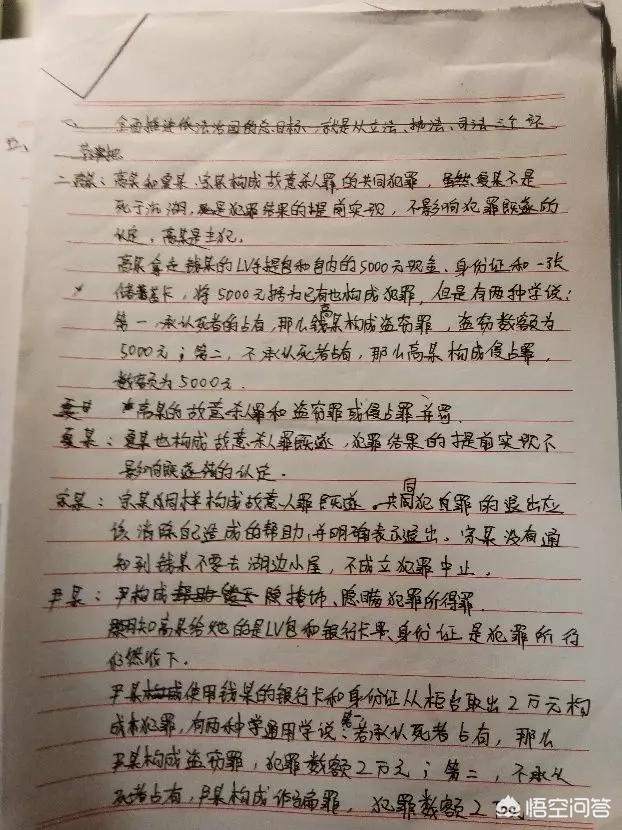 全面推进依法治国的总目标，就是从立法、执法、司法三个环
二、
高某：高某和夏某、宗某构成故意杀人罪的共同犯罪，虽然夏某不是
死于沉湖，是犯罪结果的提前实现，不影响犯罪既遂的
认定。高某是主犯。
高某拿走钱某的LV手提包和包内的5000元现金、身份证和一张
储蓄卡，将5000元据为已有也构成犯罪，但是有两种学说：
第一，承认死者的占有，那么高某构成盗窃罪，盗窃数额为
5000元；第二，不承认死者占有，那么高某构成侵占罪，
数额为5000元。
高某的故意杀人罪和盗窃罪或侵占罪并罚。
夏某：夏某也构成故意杀人罪既遂，犯罪结果的提前实现不
影响既遂的认定。
宗某：宗某同样构成故意人罪既遂。共同犯罪的退出应
该消除自己造成的帮助，并明确表示退出。宗某没有通
知到钱某不要去湖边小屋，不成立犯罪中止。
尹某：尹构成掩饰、隐瞒犯罪所得罪。
明知高某给她的是LV包和银行卡、身份证是犯罪所得
仍然收下。
尹某使用钱某的银行卡和身份证从柜台取出2万元构
成犯罪，有两种通用学说：第一，若承认死者占有，那么
尹某构成盗窃罪，犯罪数额2万元；第二，不承认
死者占有，尹某构成诈骗罪，犯罪数额2
悟空问答